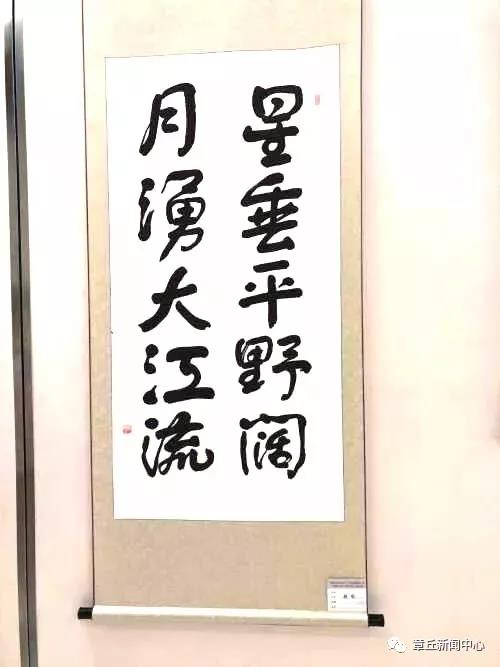 星垂平野阔
月湧大江流
章丘新闻中心